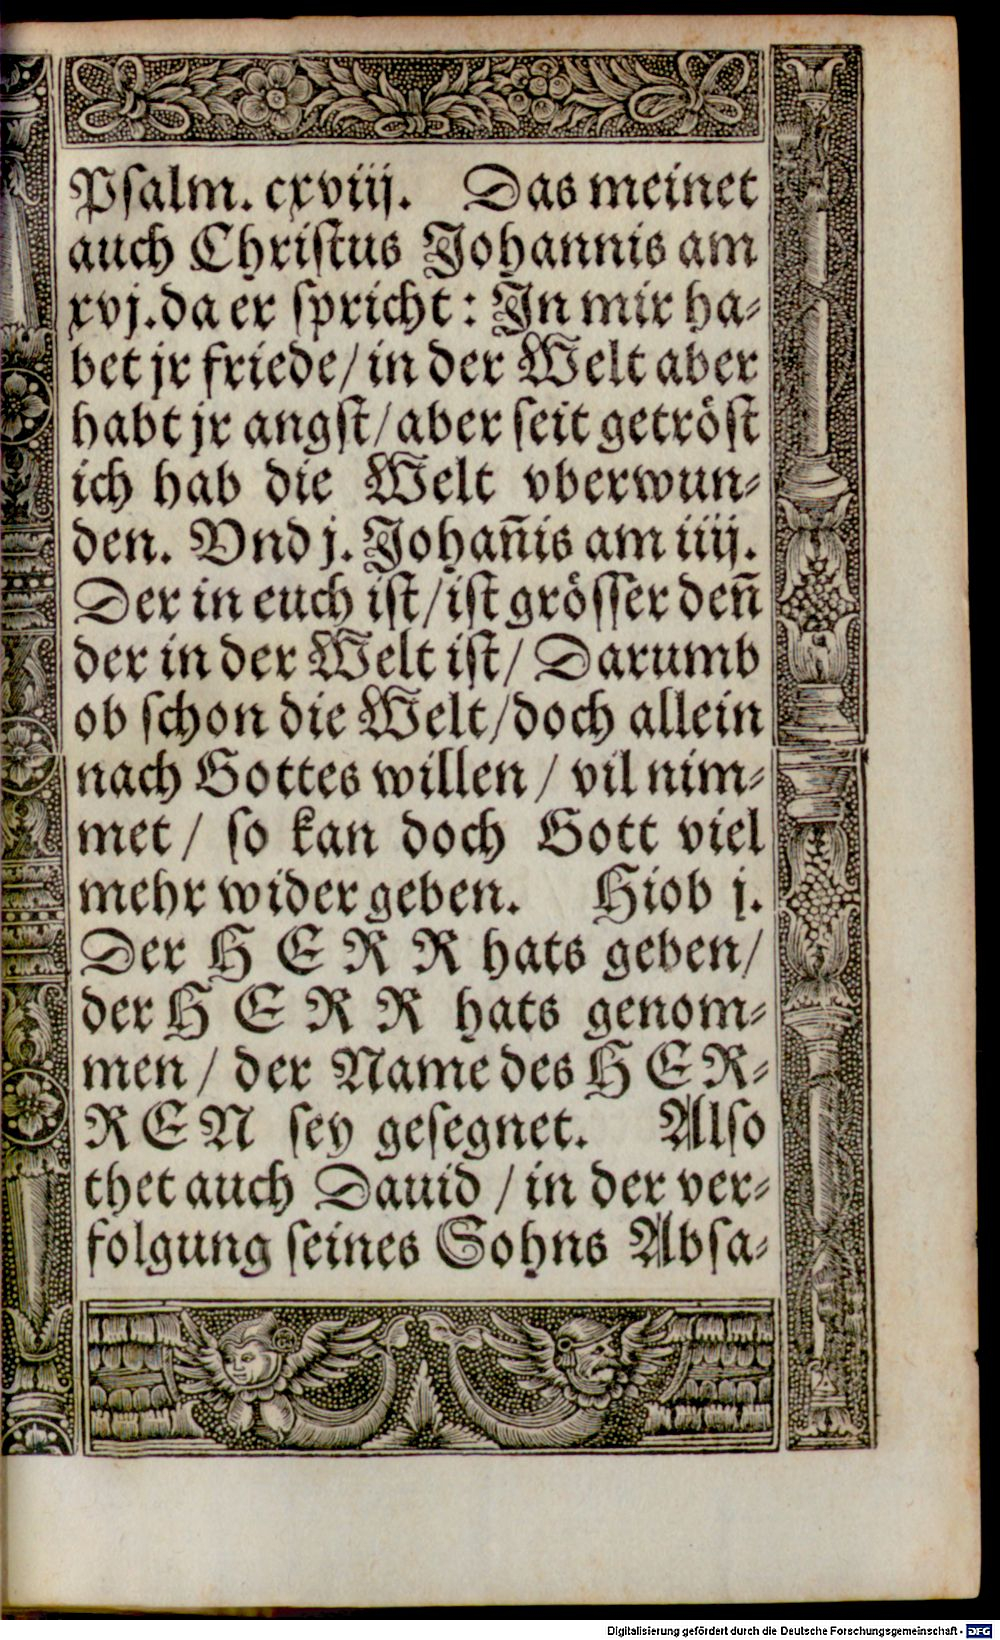 Psalm. cxviij. Das meinet
auch Christus Johannis am
xvj. da er spricht: In mir ha-
bet jr friede/ in der Welt aber
habt jr angst/ aber seit getröst
ich hab die Welt vberwun-
den. Vnd j. Johañis am iiij.
Der in euch ist/ ist grösser deñ
der in der Welt ist/ Darumb
ob schon die Welt/ doch allein
nach Gottes willen/ vil nim-
met/ so kan doch Gott viel
mehr wider geben. Hiob j.
Der HERR hats geben/
der HERR hats genom-
men/ der Name des HER-
REN sey gesegnet. Also
thet auch Dauid/ in der ver-
folgung seines Sohns Absa-
Digitalisierung gefördert durch die Deutsche Forschungsgemeinschaft - DFG